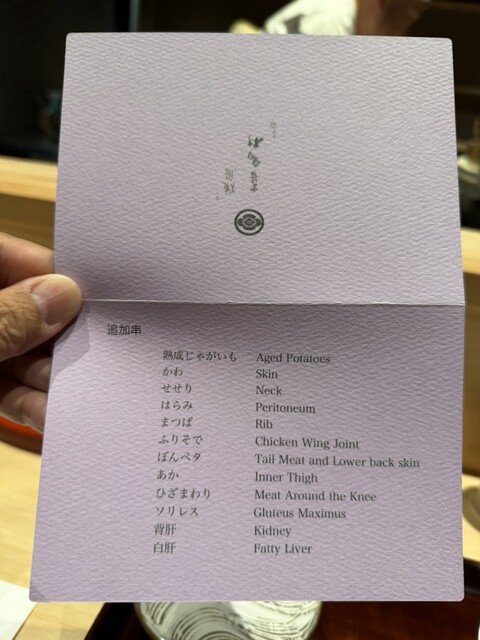 追加串
熟成じゃがいも Aged Potatoes
かわ Skin
せせり Neck
はらみ Peritoneum
まつば Rib
ふりそで Chicken Wing Joint
ぼんペタ Tail Meat and Lower back skin
あか Inner Thigh
ひざまわり Meat Around the Knee
ソリレス Gluteus Maximus
背肝 Kidney
白肝 Fatty Liver